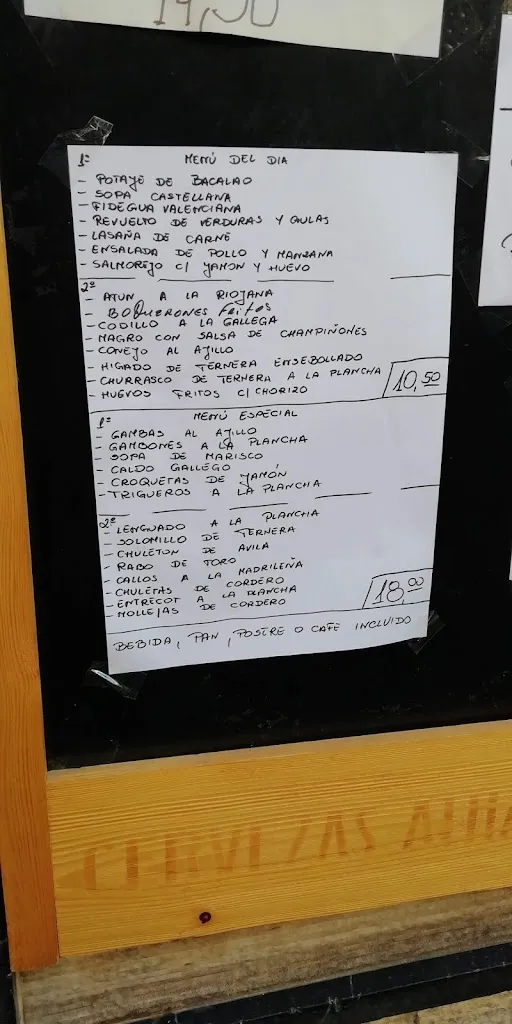 19,50
1º MENÚ DEL DIA
- POTAJE DE BACALAO
- SOPA CASTELLANA
- FIDEGUA VALENCIANA
- REVUELTO DE VERDURAS Y GULAS
- LASAÑA DE CARNE
- ENSALADA DE POLLO Y MANZANA
- SALMOREJO C/ JAMON Y HUEVO
2º
- ATUN A LA RIOJANA
- BOQUERONES FRITOS
- CODILLO A LA GALLEGA
- MAGRO CON SALSA DE CHAMPIÑONES
- CONEJO AL AJILLO
- HIGADO DE TERNERA ENSEBOLLADO
- CHURRASCO DE TERNERA A LA PLANCHA
- HUEVOS FRITOS C/ CHORIZO
10,50
1º MENÚ ESPECIAL
- GAMBAS AL AJILLO
- GAMBONES A LA PLANCHA
- SOPA DE MARISCO
- CALDO GALLEGO
- CROQUETAS DE JAMÓN
- TRIGUEROS A LA PLANCHA
2º
- LENGUADO A LA PLANCHA
- SOLOMILLO DE TERNERA
- CHULETON DE AVILA
- RABO DE TORO
- CALLOS A LA MADRILEÑA
- CHULETAS DE CORDERO
- ENTRECOT A LA PLANCHA
- MOLLEJAS DE CORDERO
18,00
BEBIDA, PAN, POSTRE O CAFE INCLUIDO
CERVEZAS